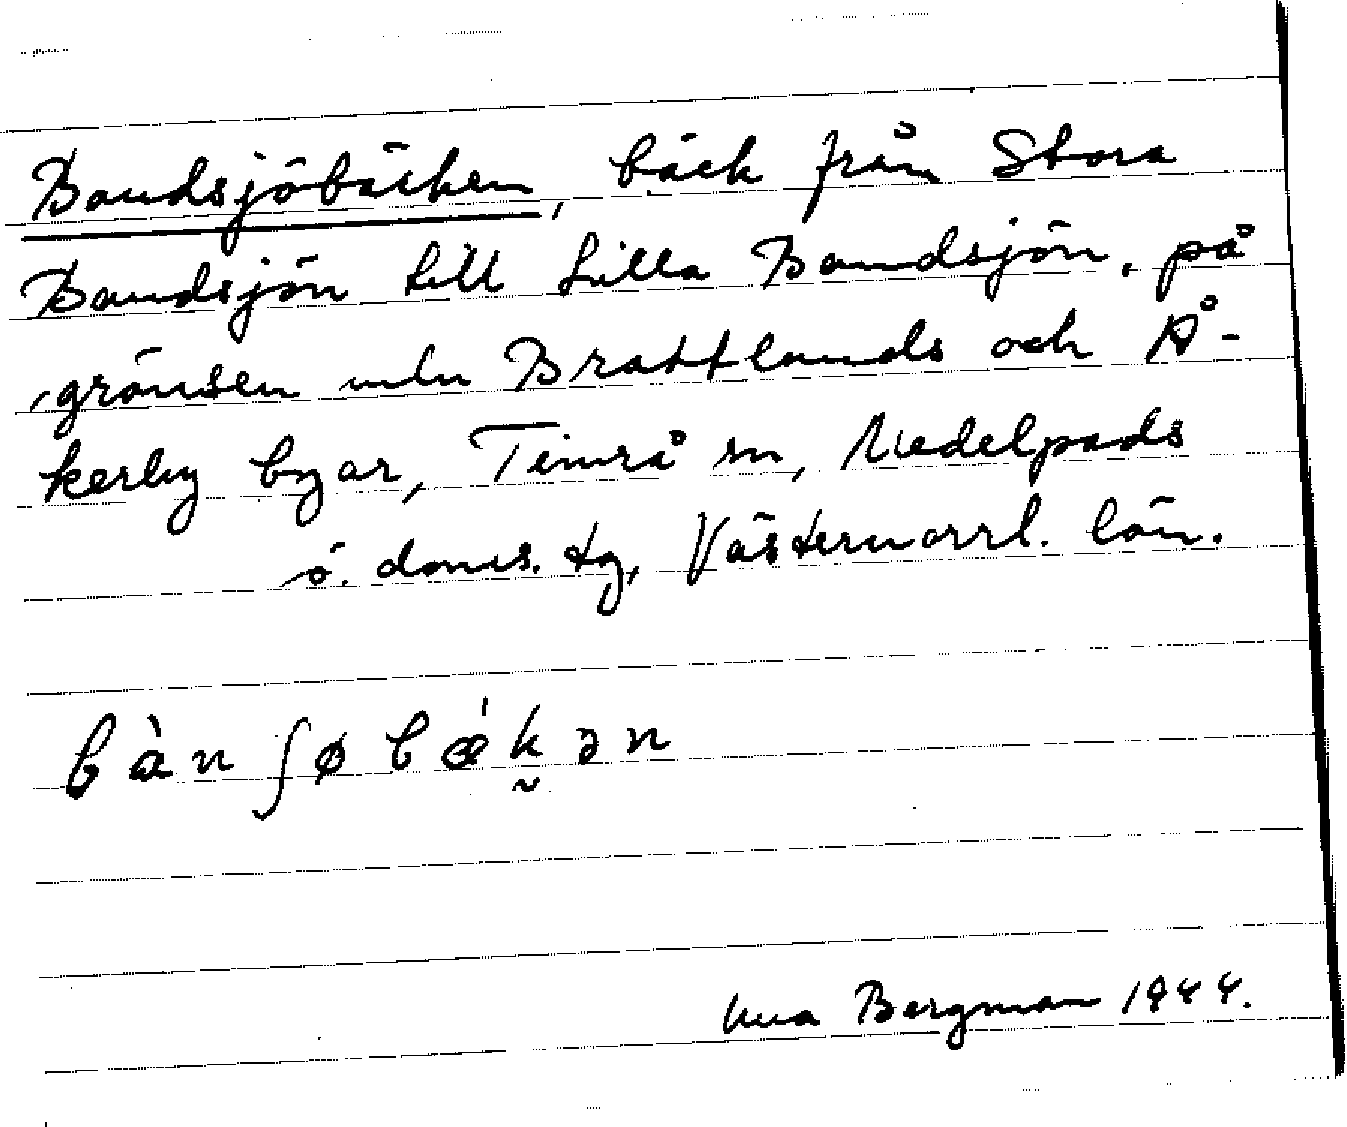 Bandsjöbäcken, bäck från Stora
Bandsjön till Lilla Bandsjön, på
gränsen mln Brattlands och Å-
kerby byar, Timrå sn, Medelpads
ö. doms. tg, Västernorrl. län.
bàn ʃø bǽk̮ən
Bergman 1944.